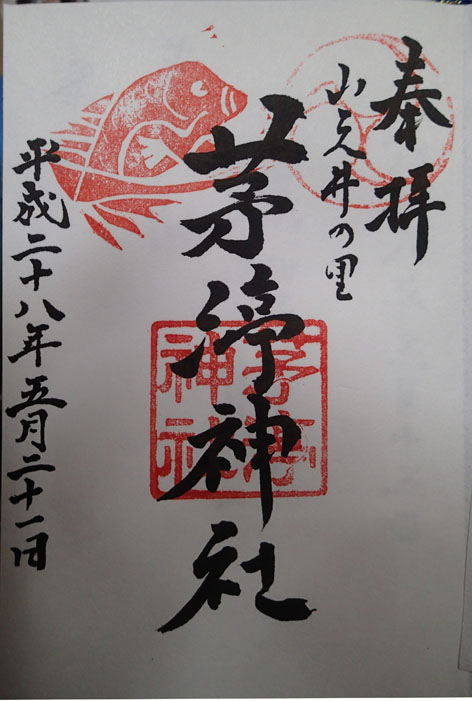 奉拝
山之井の里
茅渟神社
茅渟神社
平成二十八年五月二十一日